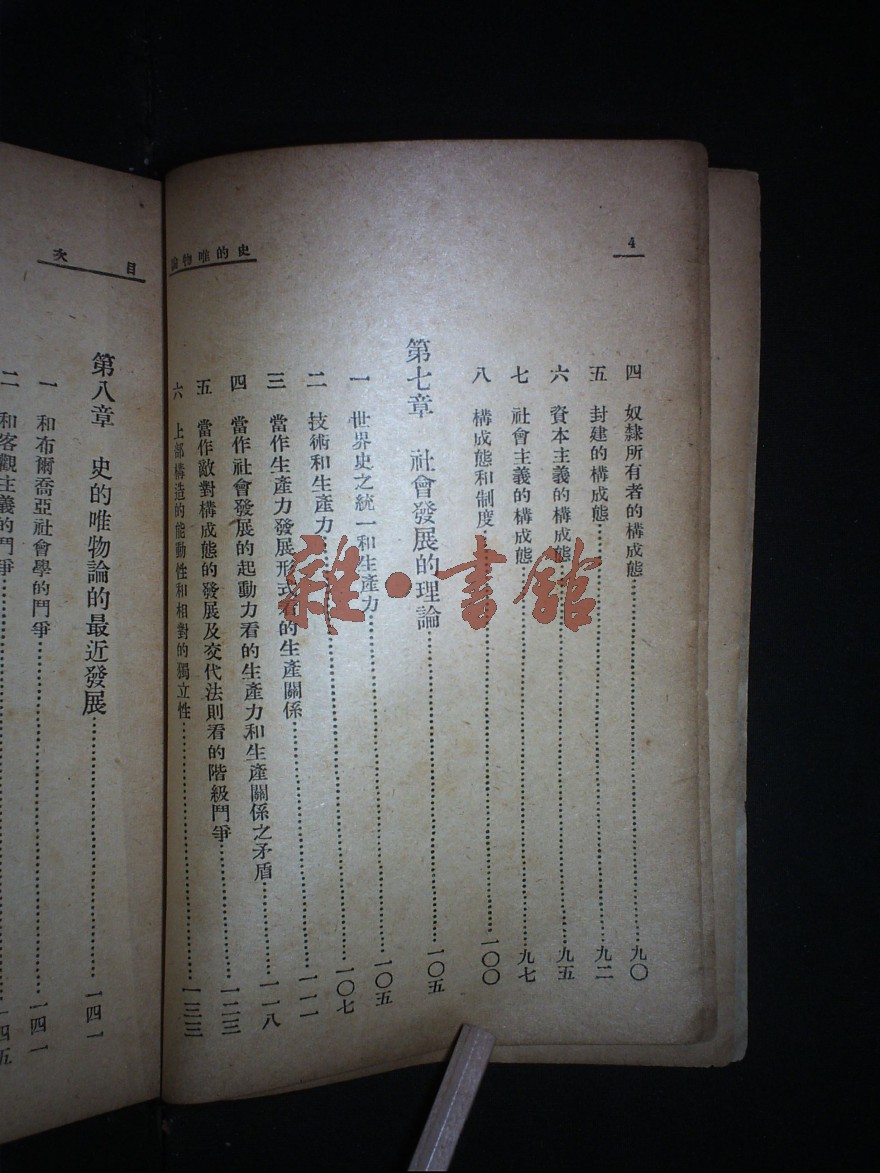 4
史的唯物論
四 奴隸所有者的構成態……九〇
五 封建的構成態……九二
六 資本主義的構成態……九五
七 社會主義的構成態……九七
八 構成態和制度……一〇〇
第七章 社會發展的理論……一〇五
一 世界史之統一和生產力……一〇五
二 技術和生產力……一〇七
三 當作生產力發展形式看的生產關係……一一一
四 當作社會發展的起動力看的生產力和生產關係之矛盾……一一八
五 當作敵對構成態的發展及交代法則看的階級鬥爭……一二三
六 上部構造的能動性和相對的獨立性……一三三
目次
第八章 史的唯物論的最近發展……一四一
一 和布爾喬亞社會學的鬥爭……一四一
二 和客觀主義的鬥爭……一四五
雜·書館